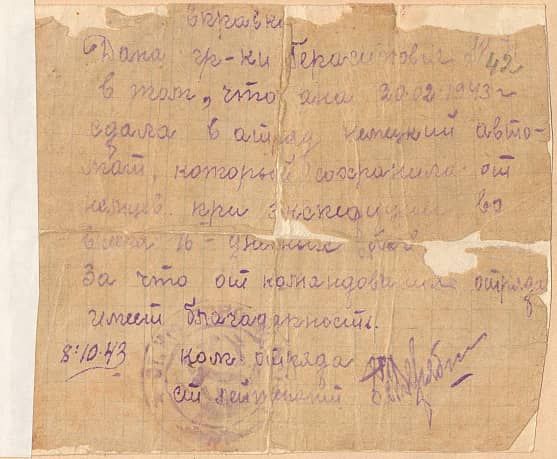 справка
Дана гр-ки Герасимович М
42
в том, что она 20.02.1943 г
сдала в атряд немецкий авто-
мат, который сохранила от
немцев при экспедиции во
время 16-дневных боев
За что от командования отряда
имеет благадарность.
8.10.43 ком отряда
ст лейтенант